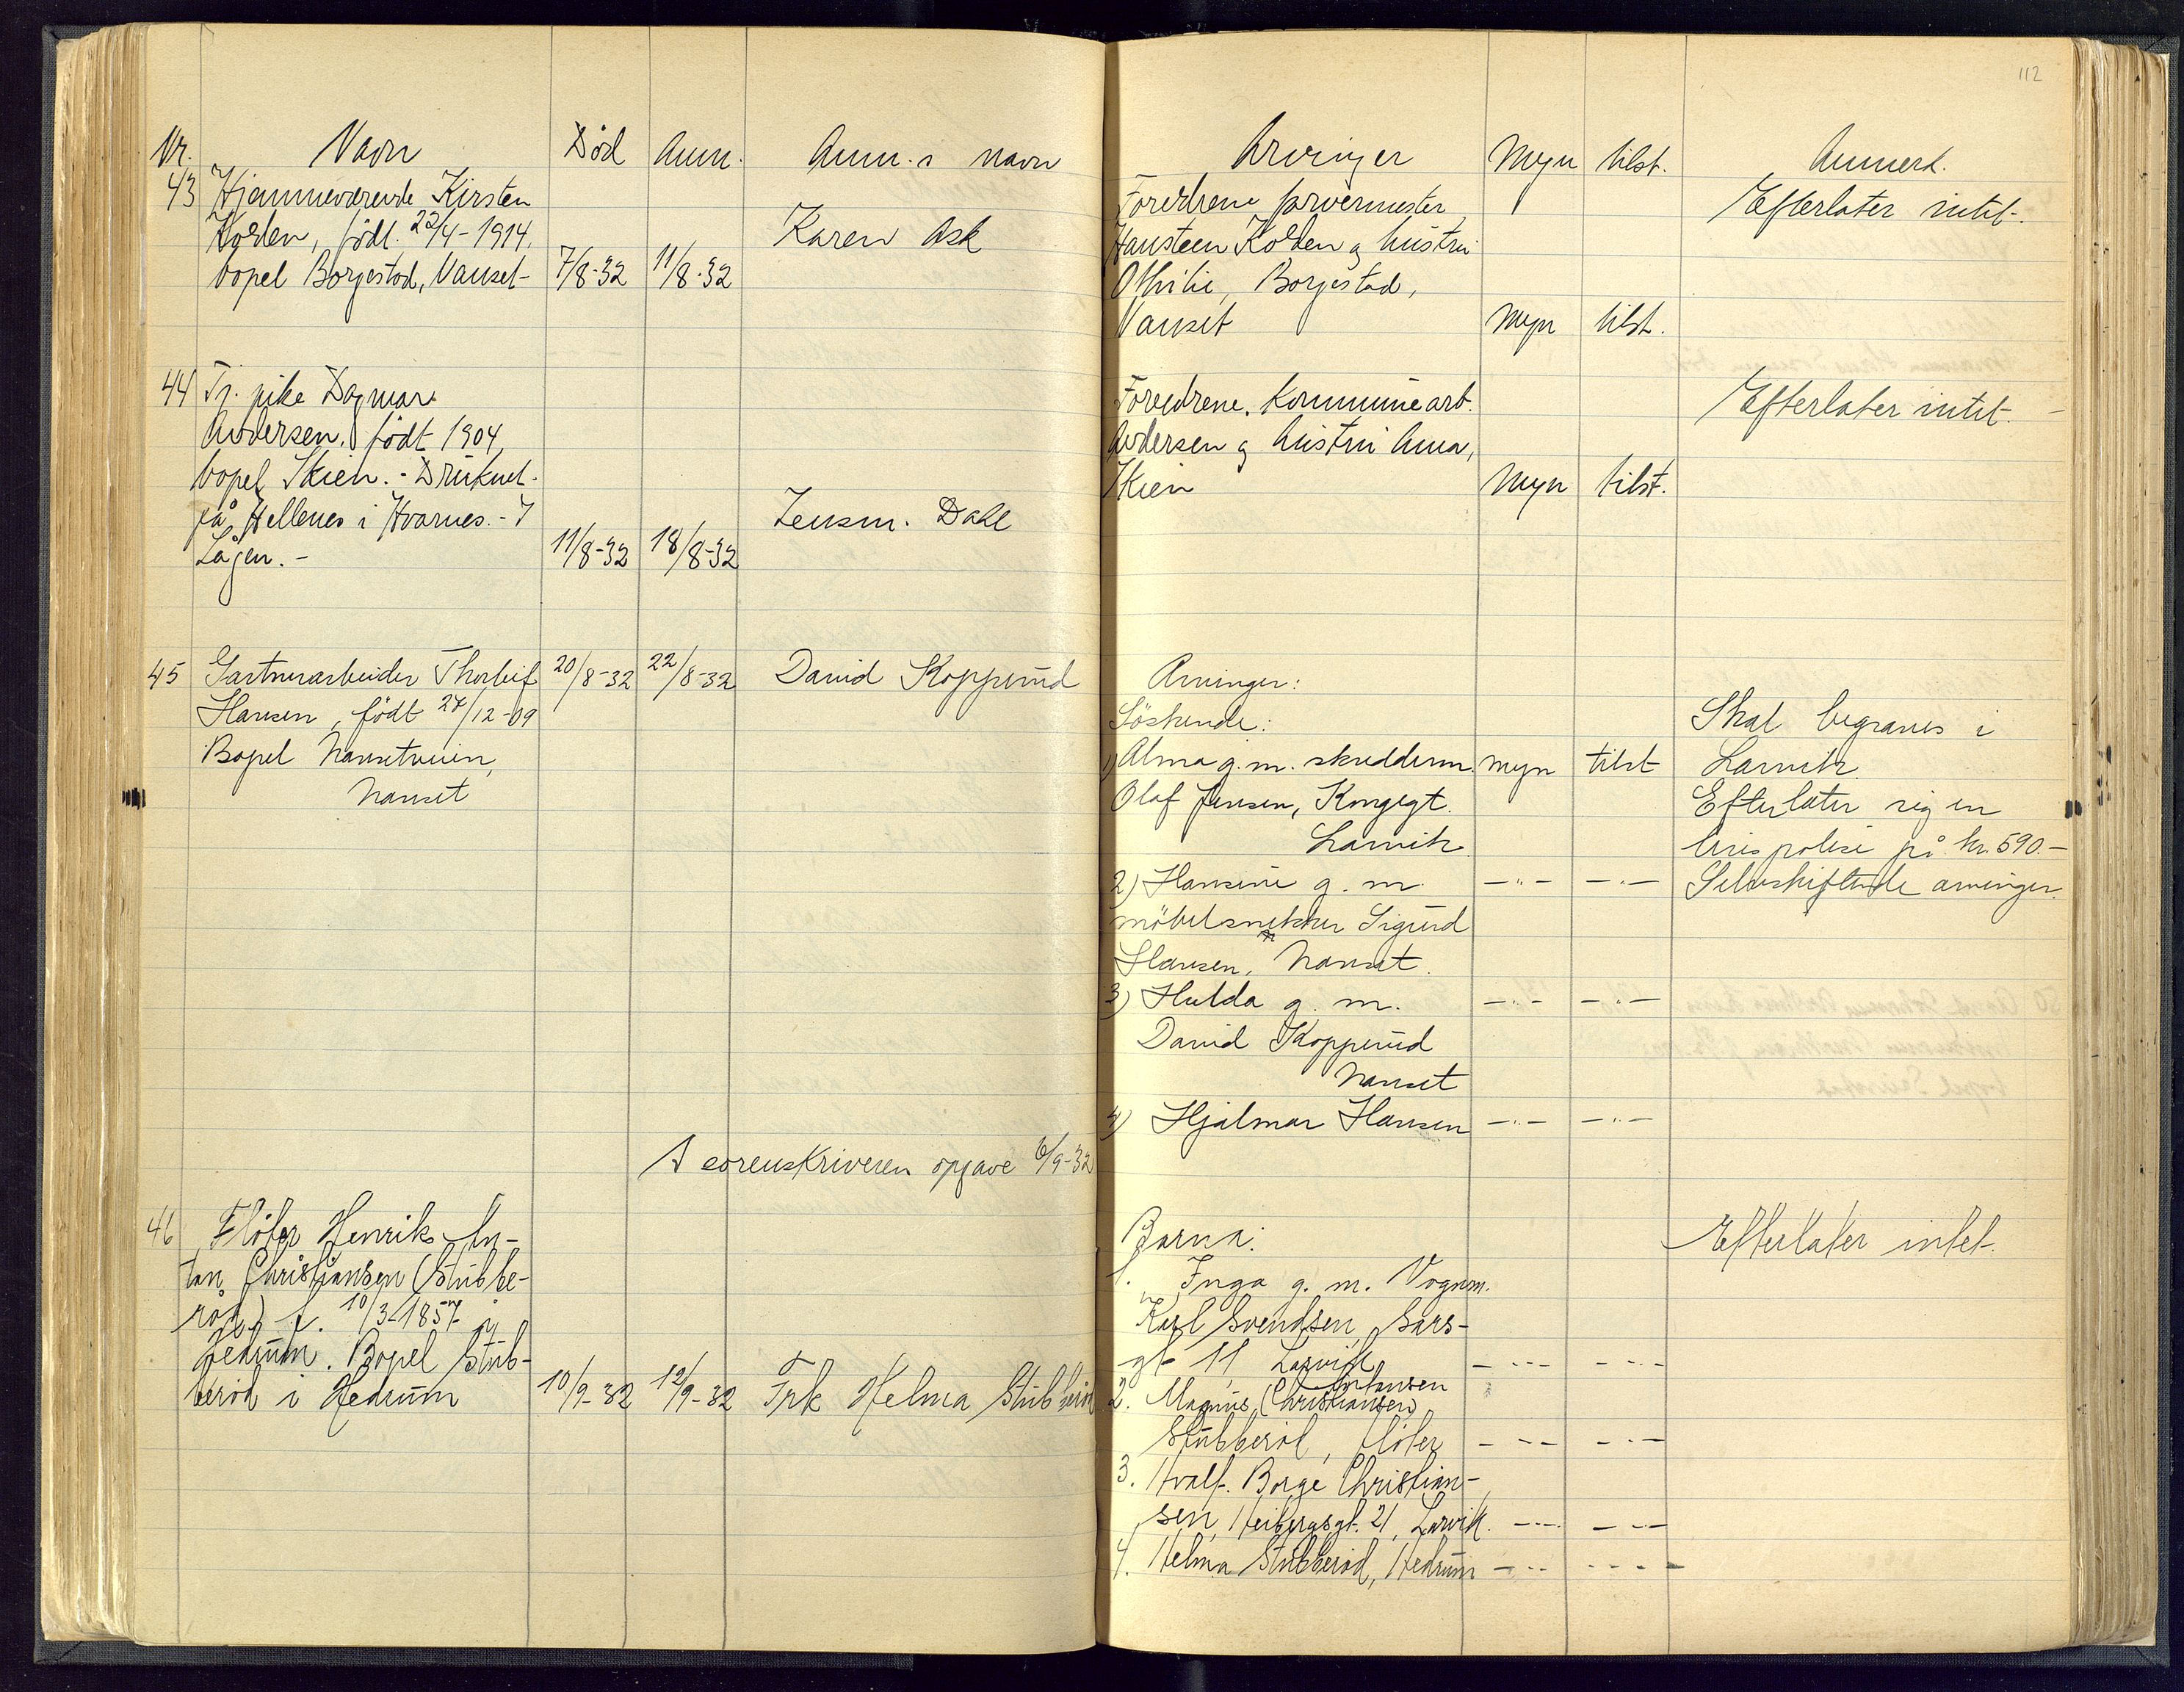 112
Nr. Navn Død Anm. Anm.s navn
43 Hjemmeværende Kirsten
Kolden, født 22/4-1914,
bopel Borgestad, Nanset- 7/8-32 11/8-32
Karen Ask
44 Tj. pike Dagmar
Andersen, født 1904,
bopel Skien. - Druknet
på Hellenes i Hvarnes. - I
Lågen. - 11/8-32 18/8-32
Lensm. Dahl
45 Gartnerarbeider Thorleif 20/8-32 22/8-32 David Kopperud
Hansen, født 27/12-09
Bopel Nansetveien,
Nanset
A sorenskriveren opgave 6/9-32
46 Fløter Henrik An-
ton Christiansen (Stubbe-
rød) f. 10/3-1857 i
Hedrum. Bopel Stub-
berød i Hedrum 10/9-32 12/9-32 Frk Helma Stubberød
Arvinger Myn tilst. Anmerk.
Foreldrene farvermester Efterlater intet.
Hansteen Kolden og hustru
Othilie, Borgestad,
Nanset Myn tilst.
Foreldrene, Kommunearb. Efterlater intet. -
Andersen og hustru Anna,
Skien Myn tilst.
Arvinger:
Søskende: Skal begraves i
1) Alma g.m. skredderm. myn tilst Larvik
Olaf Jensen, Kongegt. Efterlater sig en
Larvik livspolise på kr. 590.-
2) Hansine g.m. -"- -"- Selvskiftende arvinger.
møbelsnekker Sigurd
Hansen, Nanset.
3) Hulda g.m. -"- -"-
David Kopperud
Nanset
4) Hjalmar Hansen -"- -"-
Barna: Efterlater intet.
1. Inga g. m. Vognm.
Karl Svendsen, Gårs-
gt 11, Larvik -"- -"-
Antonsen
2. Magnus (Christiansen)
Stubberød, fløter -"- -"-
3. Hvalf. Borge Christian-
sen, Heibergsgt. 21, Larvik. -"- -"-
4. Helma Stubberød, Hedrum -"- -"-